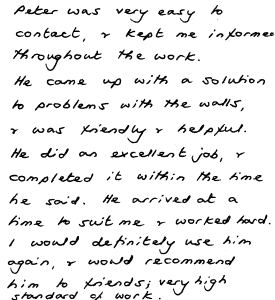 Peter was very easy to
contact, & kept me informed
throughout the work.
He came up with a solution
to problems with the walls,
& was friendly & helpful.
He did an excellent job, &
completed it within the time
he said. He arrived at a
time to suit me & worked hard.
I would definitely use him
again, & would recommend
him to friends; very high
standard of work.